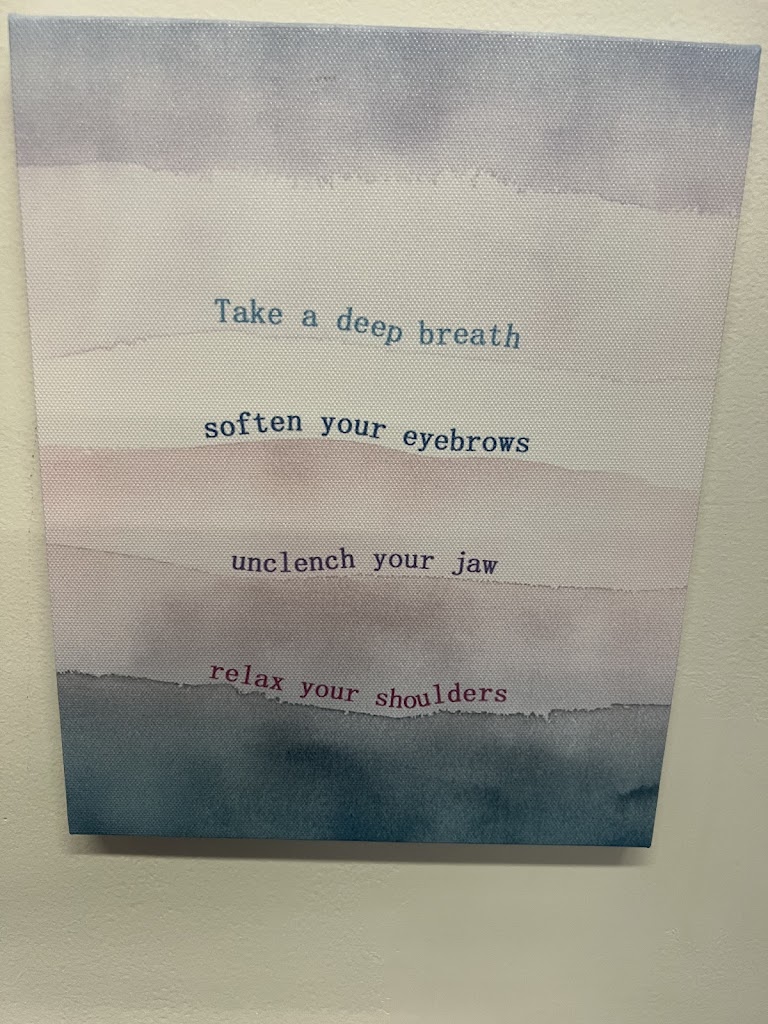 Take a deep breath
soften your eyebrows
unclench your jaw
relax your shoulders